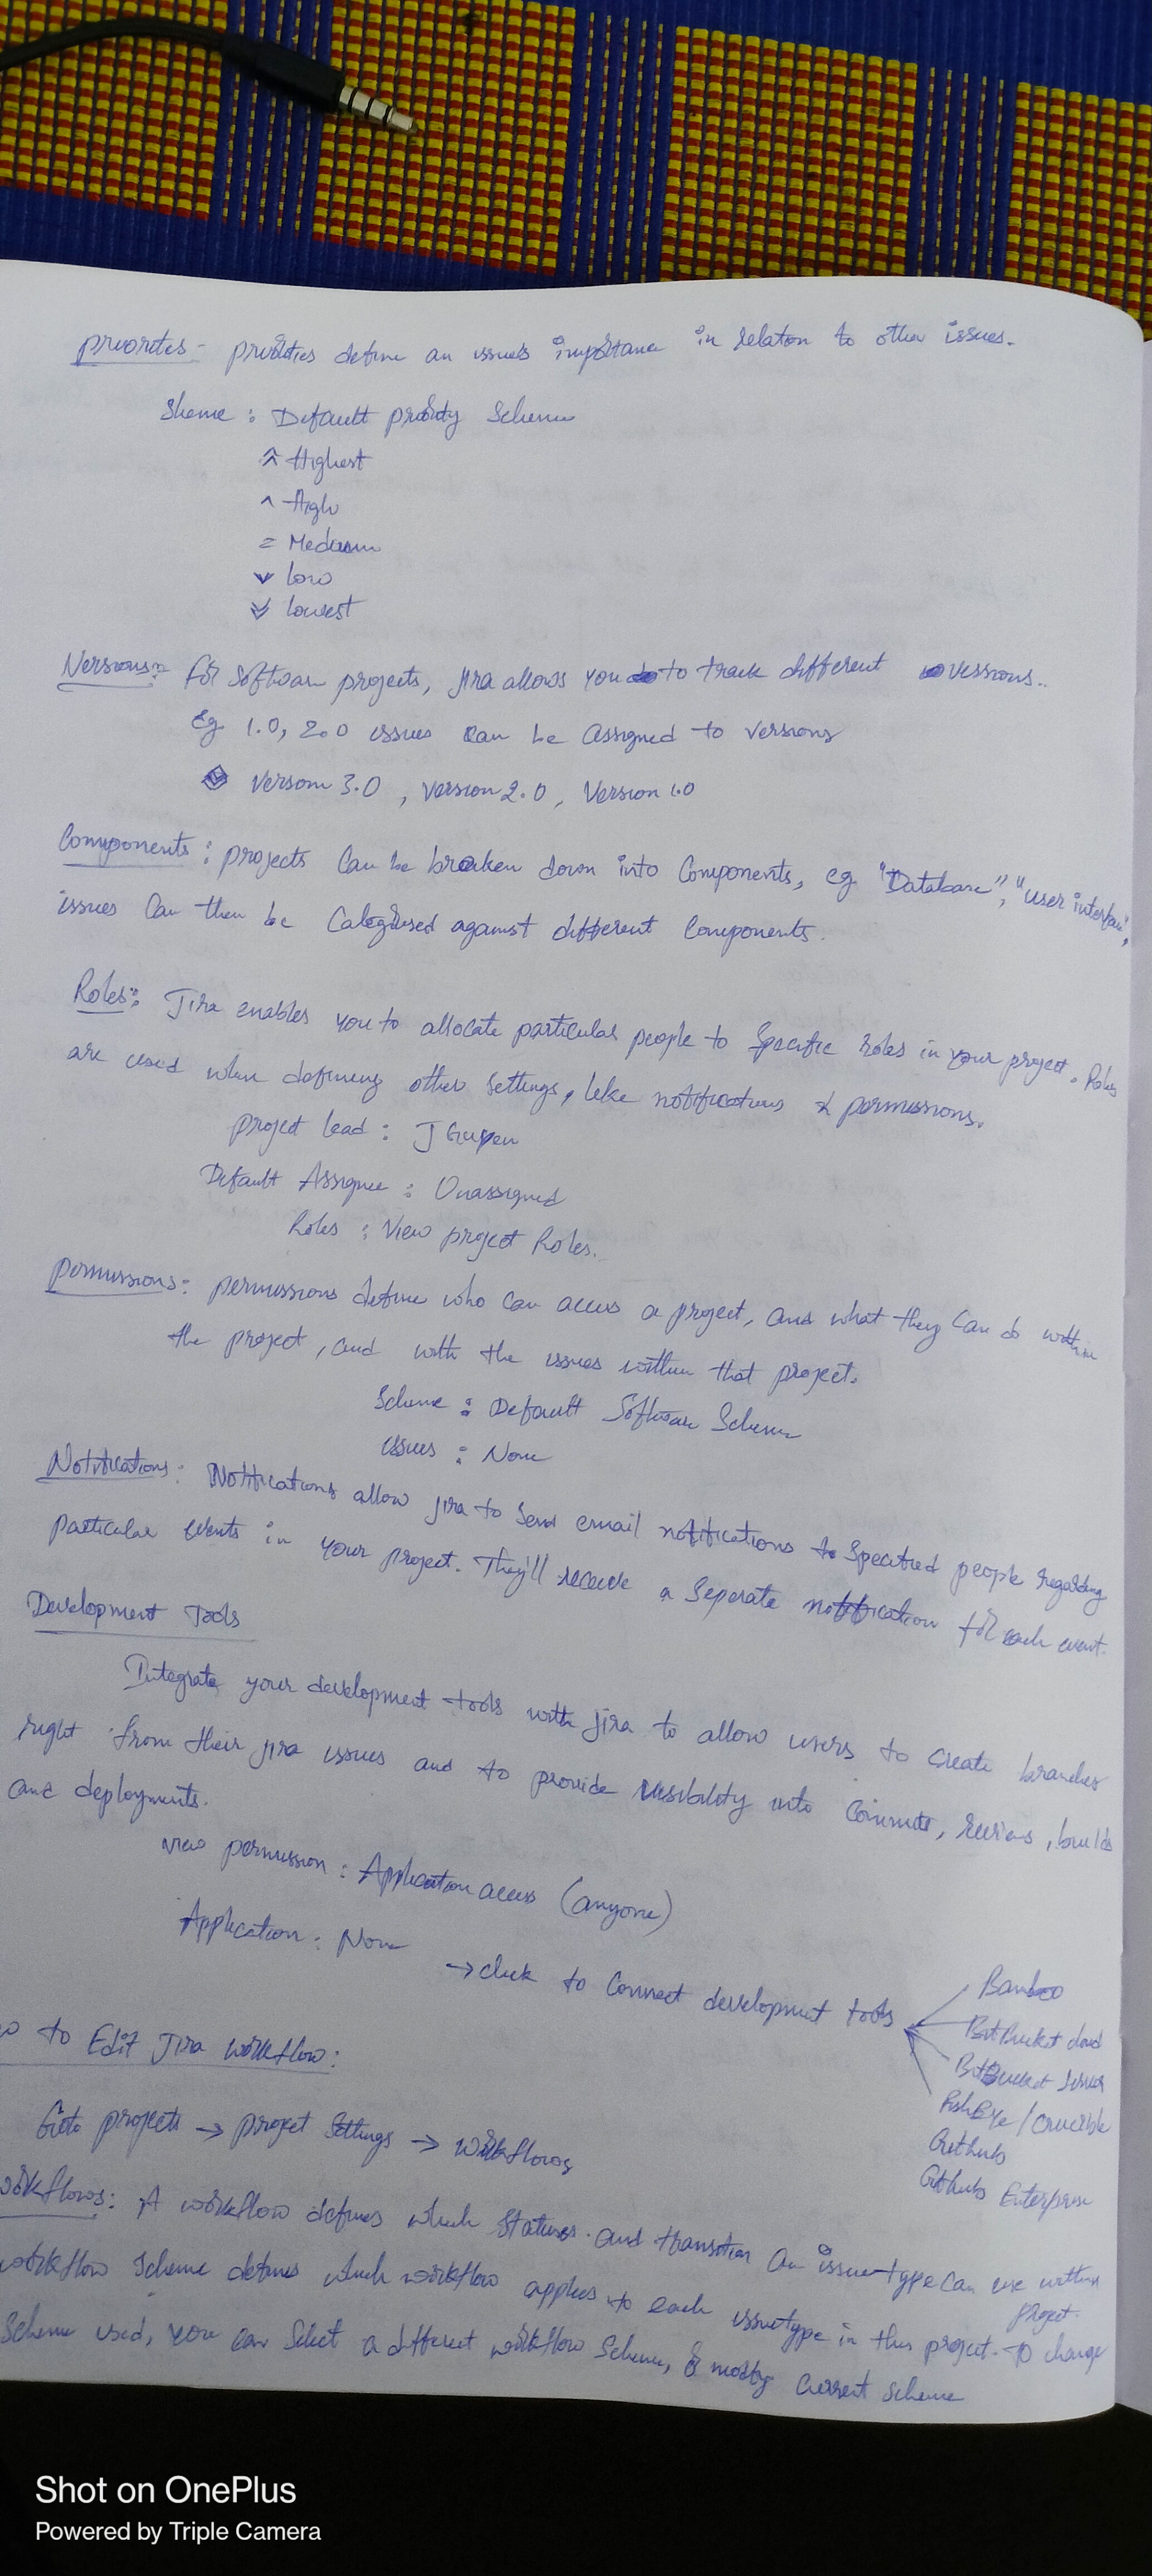 priorites - priorities define an issue's importance in relation to other issues.
Sheme : Default priority Scheme
Highest
^ High
= Medium
v low
lowest
Versions:- for Software projects, Jira allows you to track different versions..
Eg 1.0, 2.0 issues can be assigned to versions
Version 3.0 , version 2.0 , Version 1.0
Components : projects Can be broken down into Components, eg "Database", "user interface",
issues Can then be Categorised against different Components.
Roles:- Jira enables you to allocate particular people to Specific roles in your project. Roles
are used when defining other Settings, like notifications & permissions.
project lead : J
Default Assignee : Unassigned
Roles : View project Roles.
Permissions: permissions define who can access a project, and what they can do within
the project, and with the issues within that project.
Scheme : Default Software Scheme
issues : None
Notifications: Notifications allow jira to Send email notifications to Specified people regarding
particular events in your project. They'll receive a Seperate notification for each event.
Development Tools
Integrate your development tools with jira to allow users to create branches
right from their jira issues and to provide visibility into Commits, reviews, builds
and deployments.
view permission : Application access (anyone)
Application : None
→ click to Connect development tools
Bamboo
BitBucket cloud
BitBucket Server
FishEye / Crucible
Github
Github Enterprise
to Edit Jira workflow:
Goto projects → project Settings → workflows
workflows: A workflow defines which Statuses and transition an issue type can use within
project.
workflow Scheme defines which workflow applies to each issuetype in this project. To change
Scheme used, you can Select a different workflow Scheme, or modify current scheme
Shot on OnePlus
Powered by Triple Camera